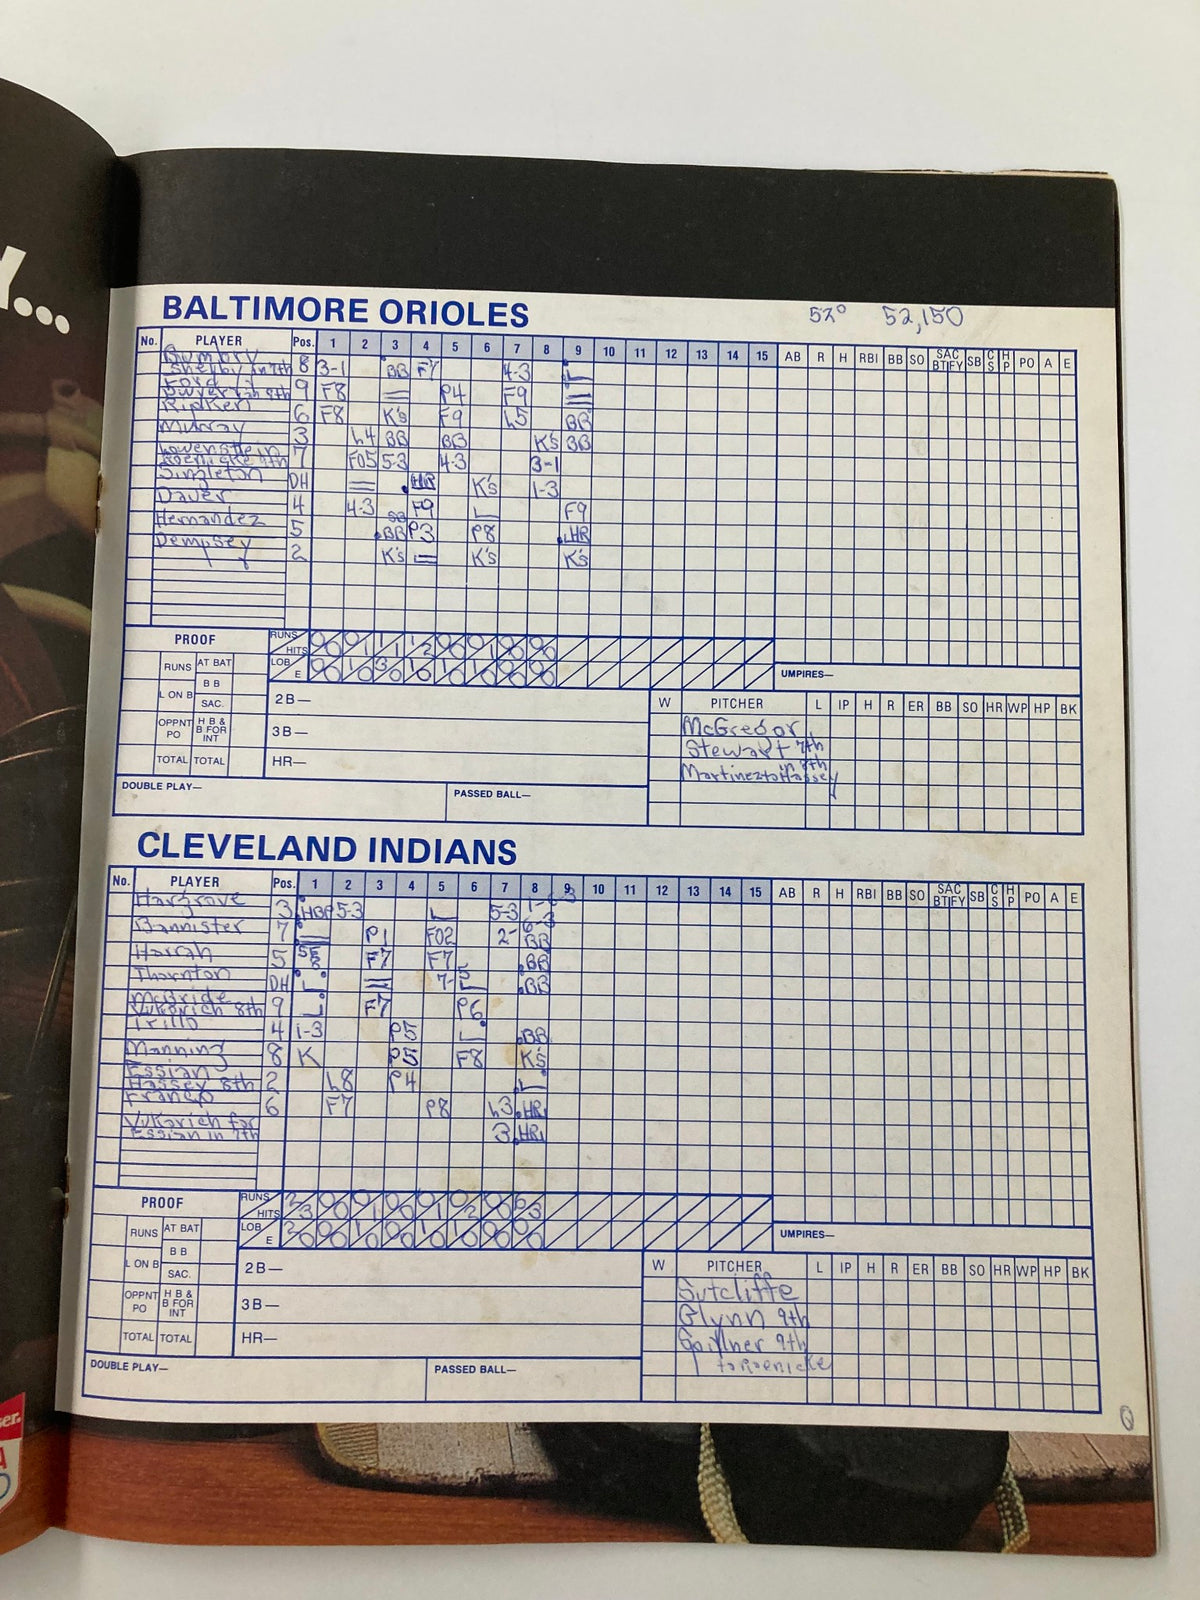 Y...
BALTIMORE ORIOLES 52° 52,150
No. PLAYER Pos. 1 2 3 4 5 6 7 8 9 10 11 12 13 14 15 AB R H RBI BB SO SAC BTIFY SB CS HP PO A E
Bumbry
Shelby in 7th 8 3-1 BB F7 4-3
Ford
9 F8 P4 F9
Ripken 6 F8 K's F9 L5 BB
Murray 3 L4 BB BB K's BB
Lowenstein
Roenicke 9th 7 FO5 5-3 4-3 3-1
Singleton DH HR K's 1-3
Dauer 4 4-3 F9 F9
Hernandez 5 SB BB P3 P8 HR
Dempsey 2 K's K's K's
PROOF RUNS HITS 0/0 0/1 1/1 1/2 0/0 0/1 0/0 0/0
RUNS AT BAT LOB E 0/0 1/0 3/0 1/0 1/0 1/0 0/0 0/0 UMPIRES—
B B
L ON B SAC. 2B— W PITCHER L IP H R ER BB SO HR WP HP BK
OPPNT PO H B & B FOR INT 3B— McGregor
Stewart 7th
TOTAL TOTAL HR— in 8th
Martinez to Hassey
DOUBLE PLAY— PASSED BALL—
CLEVELAND INDIANS
No. PLAYER Pos. 1 2 3 4 5 6 7 8 9 10 11 12 13 14 15 AB R H RBI BB SO SAC BTIFY SB CS HP PO A E
Hargrove 3 HBP 5-3 5-3 1-6-3
Bannister 7 P1 FO2 2- 6-3 BB
Harrah 5 F7 F7 BB
Thornton DH 7-5 BB
McBride
Vukovich 8th 9 F7 P6
Trillo 4 1-3 P5 BB
Manning 8 K P5 F8 K's
Essian
Hassey 8th 2 L8 P4
Franco 6 F7 P8 L3 HR
Vukovich for
Essian in 7th 3 HR
PROOF RUNS HITS 2/3 0/0 0/1 0/0 0/1 0/2 0/0 6/3
RUNS AT BAT LOB E 2/0 0/0 1/0 0/0 1/0 1/0 0/0 0/0 UMPIRES—
B B
L ON B SAC. 2B— W PITCHER L IP H R ER BB SO HR WP HP BK
Sutcliffe
OPPNT PO H B & B FOR INT 3B— Glynn 9th
TOTAL TOTAL HR— Spillner 9th
to Roenicke
DOUBLE PLAY— PASSED BALL—
ser.